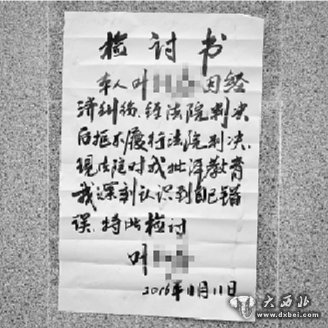 检讨书
本人叶 因经
济纠纷,经法院判决
后拒不履行法院判决,
现法院对我批评教育
我深刻认识到自己错
误,特此检讨
叶
2016年11月11日
大西北
www.dxbei.com